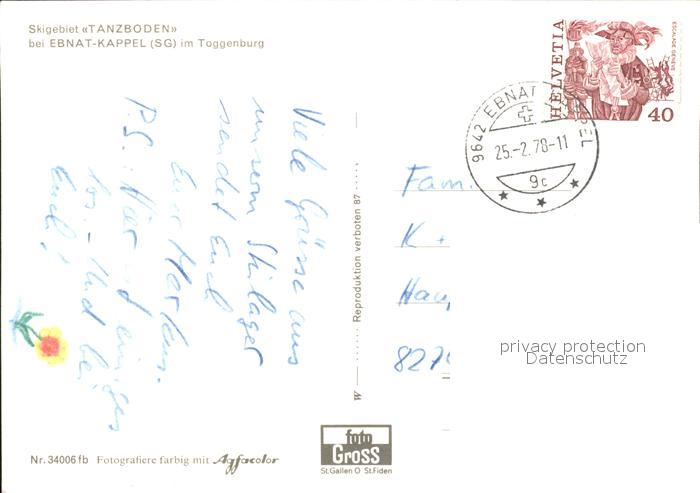 Skigebiet «TANZBODEN»
bei EBNAT-KAPPEL (SG) im Toggenburg
Viele Grüsse aus
unserm Skilager
sendet Euch
Euer Markus.
P.S.: Hier ist einiges
los. - Und bei
Euch?
Nr. 34006 fb Fotografiere farbig mit Agfacolor
W ······ Reproduktion verboten 87 ·····
foto
Gross
St.Gallen O St.Fiden
HELVETIA
ESCALADE GENEVE
40
9642 EBNAT-KAPPEL
25.-2.78-11
9c
Fam.
K +
Hau
827
privacy protection
Datenschutz